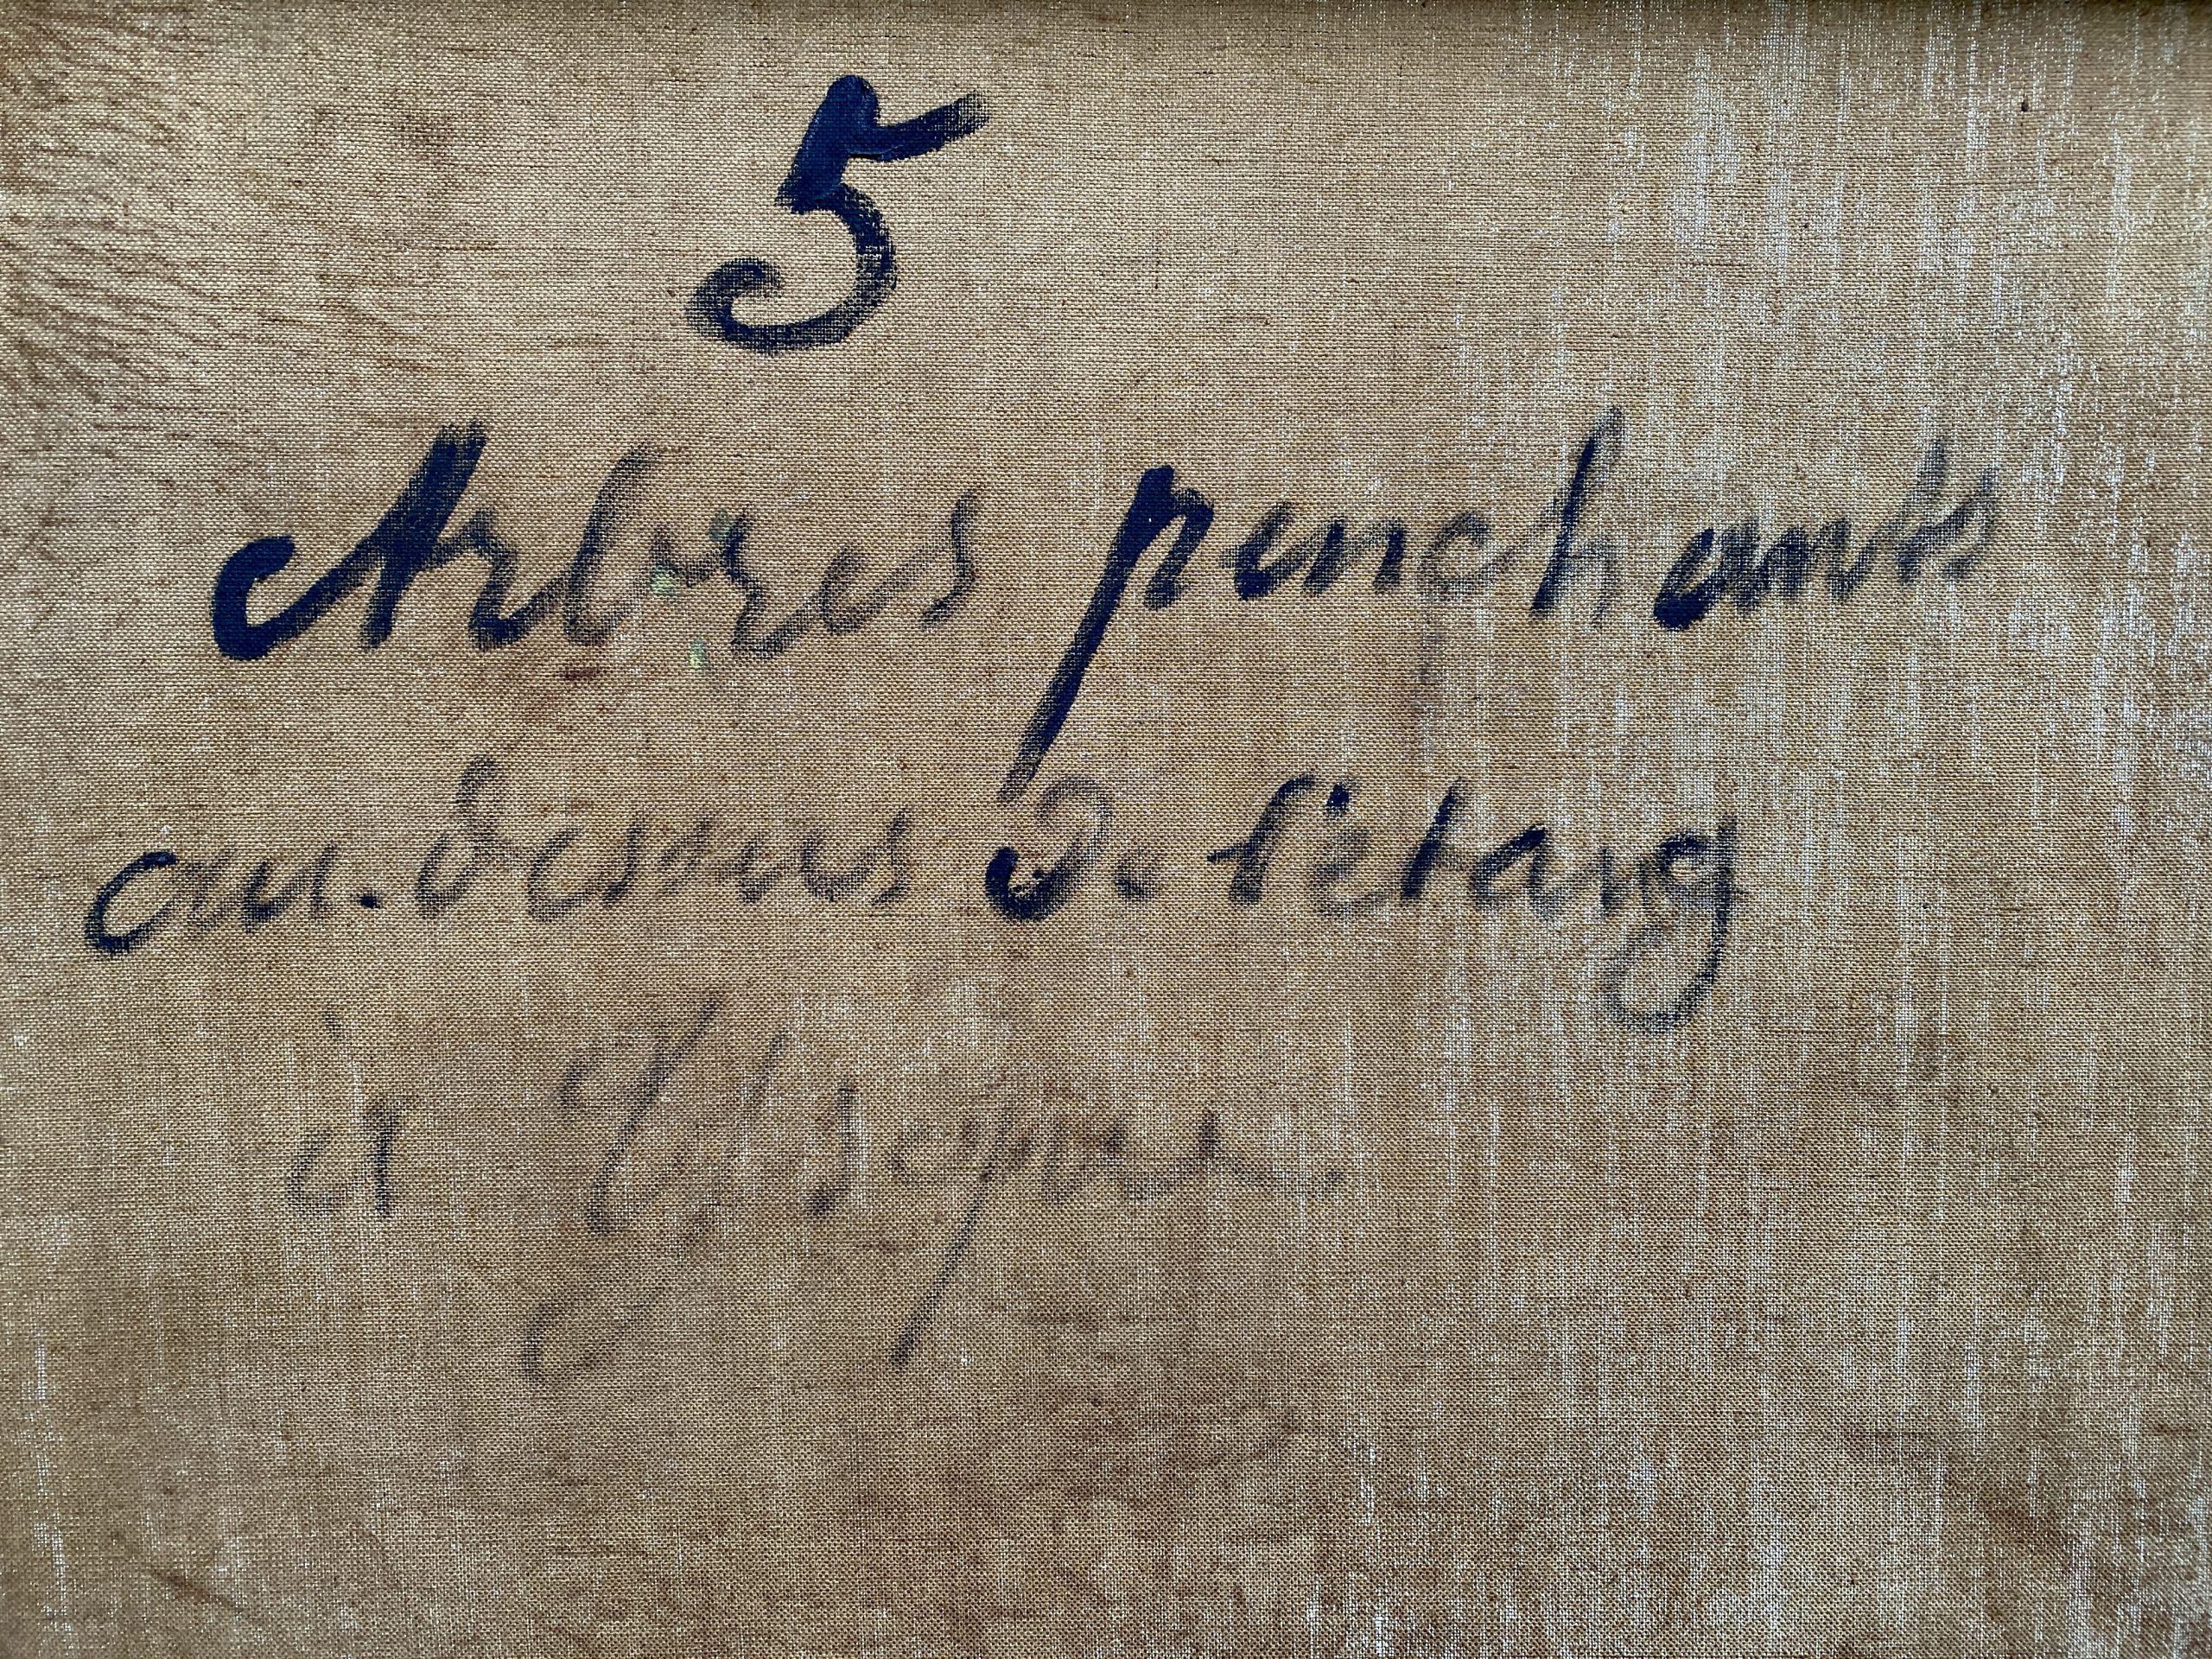 5
Arbres penchants
au. dessus de l'étang
à